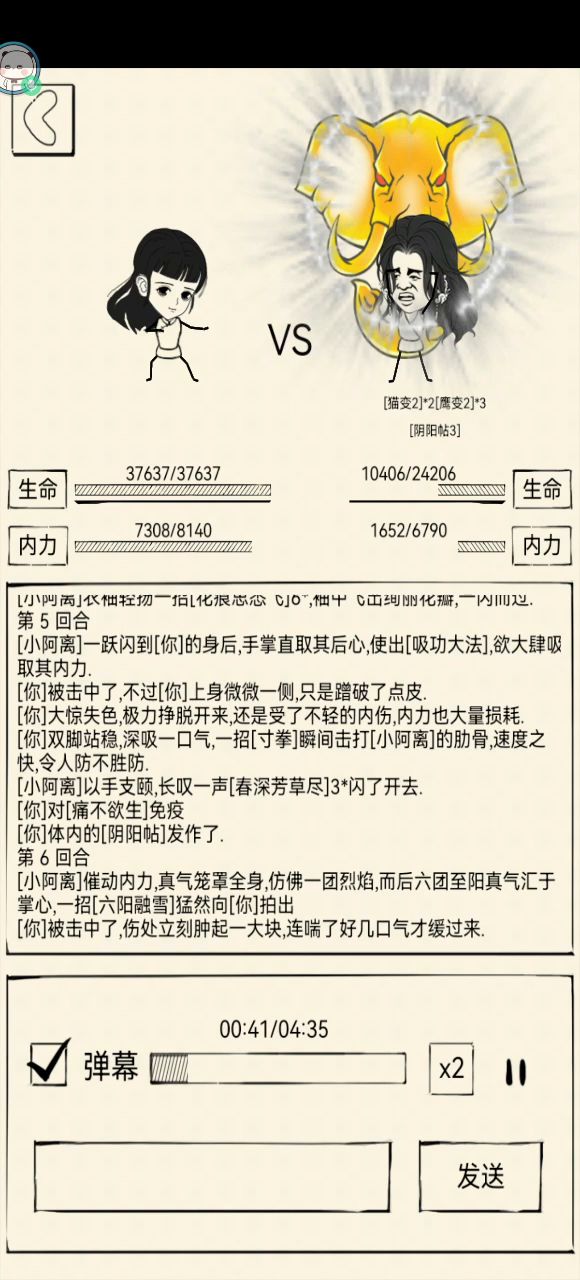 VS
[猫变2]*2[鹰变2]*3
[阴阳帖3]
生命
37637/37637
10406/24206
生命
内力
7308/8140
1652/6790
内力
[小阿离]衣袖轻扬一招[花痕悉悉
第 5 回合
[小阿离]一跃闪到[你]的身后,手掌直取其后心,使出[吸功大法],欲大肆吸
取其内力.
[你]被击中了,不过[你]上身微微一侧,只是蹭破了点皮.
[你]大惊失色,极力挣脱开来,还是受了不轻的内伤,内力也大量损耗.
[你]双脚站稳,深吸一口气,一招[寸拳]瞬间击打[小阿离]的肋骨,速度之
快,令人防不胜防.
[小阿离]以手支颐,长叹一声[春深芳草尽]3*闪了开去.
[你]对[痛不欲生]免疫
[你]体内的[阴阳帖]发作了.
第 6 回合
[小阿离]催动内力,真气笼罩全身,仿佛一团烈焰,而后六团至阳真气汇于
掌心,一招[六阳融雪]猛然向[你]拍出
[你]被击中了,伤处立刻肿起一大块,连喘了好几口气才缓过来.
00:41/04:35
弹幕
x2
发送